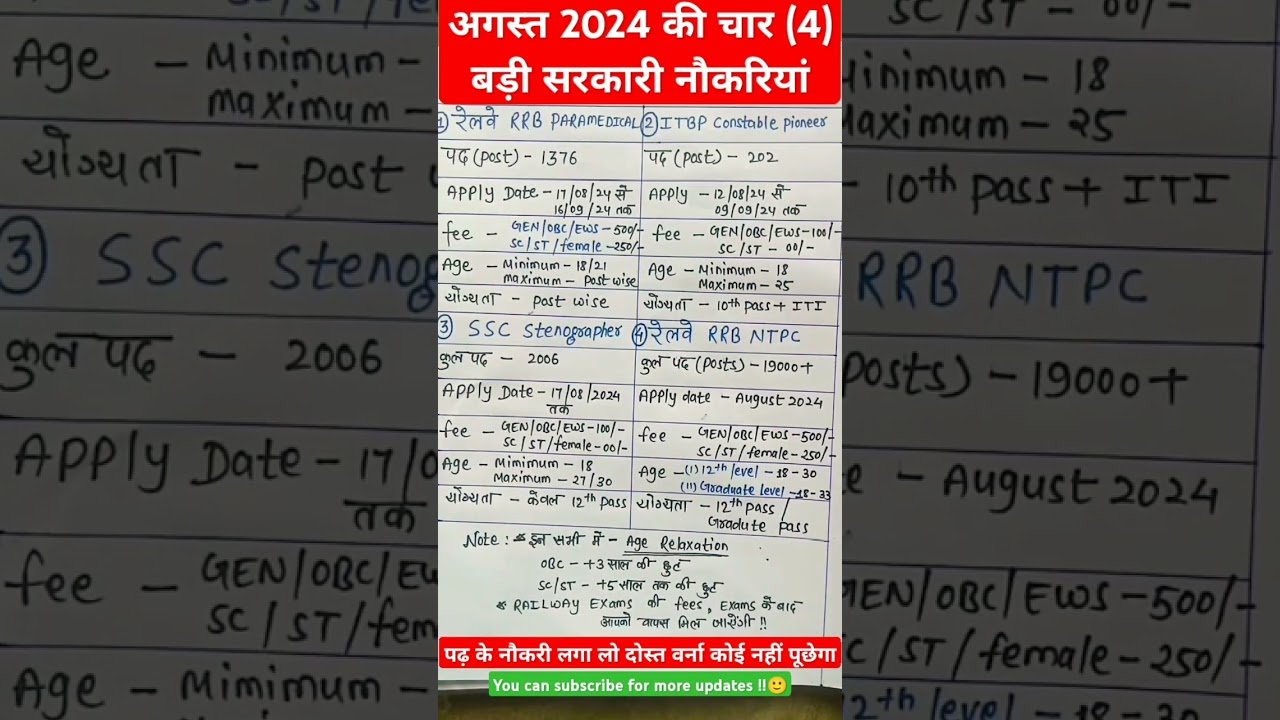 अगस्त 2024 की चार (4)
बड़ी सरकारी नौकरियां
① रेलवे RRB PARAMEDICAL
पद (post) - 1376
APPly Date - 17/08/24 से
16/09/24 तक
fee - GEN/OBC/EWS - 500/-
SC/ST/female - 250/-
Age - Minimum - 18/21
maximum - Post wise
योग्यता - post wise
② ITBP Constable pioneer
पद (Post) - 202
APPly - 12/08/24 से
09/09/24 तक
fee - GEN/OBC/EWS - 100/-
SC/ST - 00/-
Age - Minimum - 18
Maximum - 25
योग्यता - 10th pass + ITI
③ SSC Stenographer
कुल पद - 2006
APPly Date - 17/08/2024
तक
fee - GEN/OBC/EWS - 100/-
SC/ST/female - 00/-
Age - Mimimum - 18
Maximum - 27/30
योग्यता - केवल 12th pass
④ रेलवे RRB NTPC
कुल पद (Posts) - 19000+
APPly date - August 2024
fee - GEN/OBC/EWS - 500/-
SC/ST/female - 250/-
Age - (I) 12th level - 18-30
(II) Graduate level - 18-33
योग्यता - 12th pass /
Gradute pass
Note : * इन सभी में - Age Relaxation
OBC - +3 साल की छुट
SC/ST - +5 साल तक की छुट
* RAILWAY Exams की fees, Exams के बाद
आपको वापस मिल जाऐंगी !!
पढ़ के नौकरी लगा लो दोस्त वर्ना कोई नहीं पूछेगा
You can subscribe for more updates !!🙂